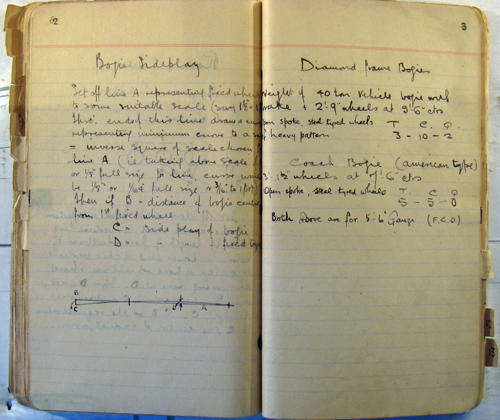 2
Bogie Sideplay
Set off line A representing fixed wheel
to some suitable scale (say 1½" =
end of this line draw a
representing minimum curve to a
= inverse square of scale chosen
line A (ie taking above scale
or ⅛ full size for line, curve
to full size or
then if B = distance of bogie centre
from 1st fixed wheel
C = Side play of bogie
D = " " " fixed
B
C
D
A
3
Diamond Frame Bogies
weight of 40 ton vehicle bogie with
brake = 2'.9" wheels at 5'.6" ctrs
open spoke, steel tyred wheels T. C. Q.
very heavy pattern 3 - 10 - 2
Coach Bogie (american type)
3'. 1½" wheels at 7'.6" ctrs
Open spoke, steel tyred wheels T C Q
5 - 5 - 0
Both above are for 5'.6" Gauge (F.C.O)